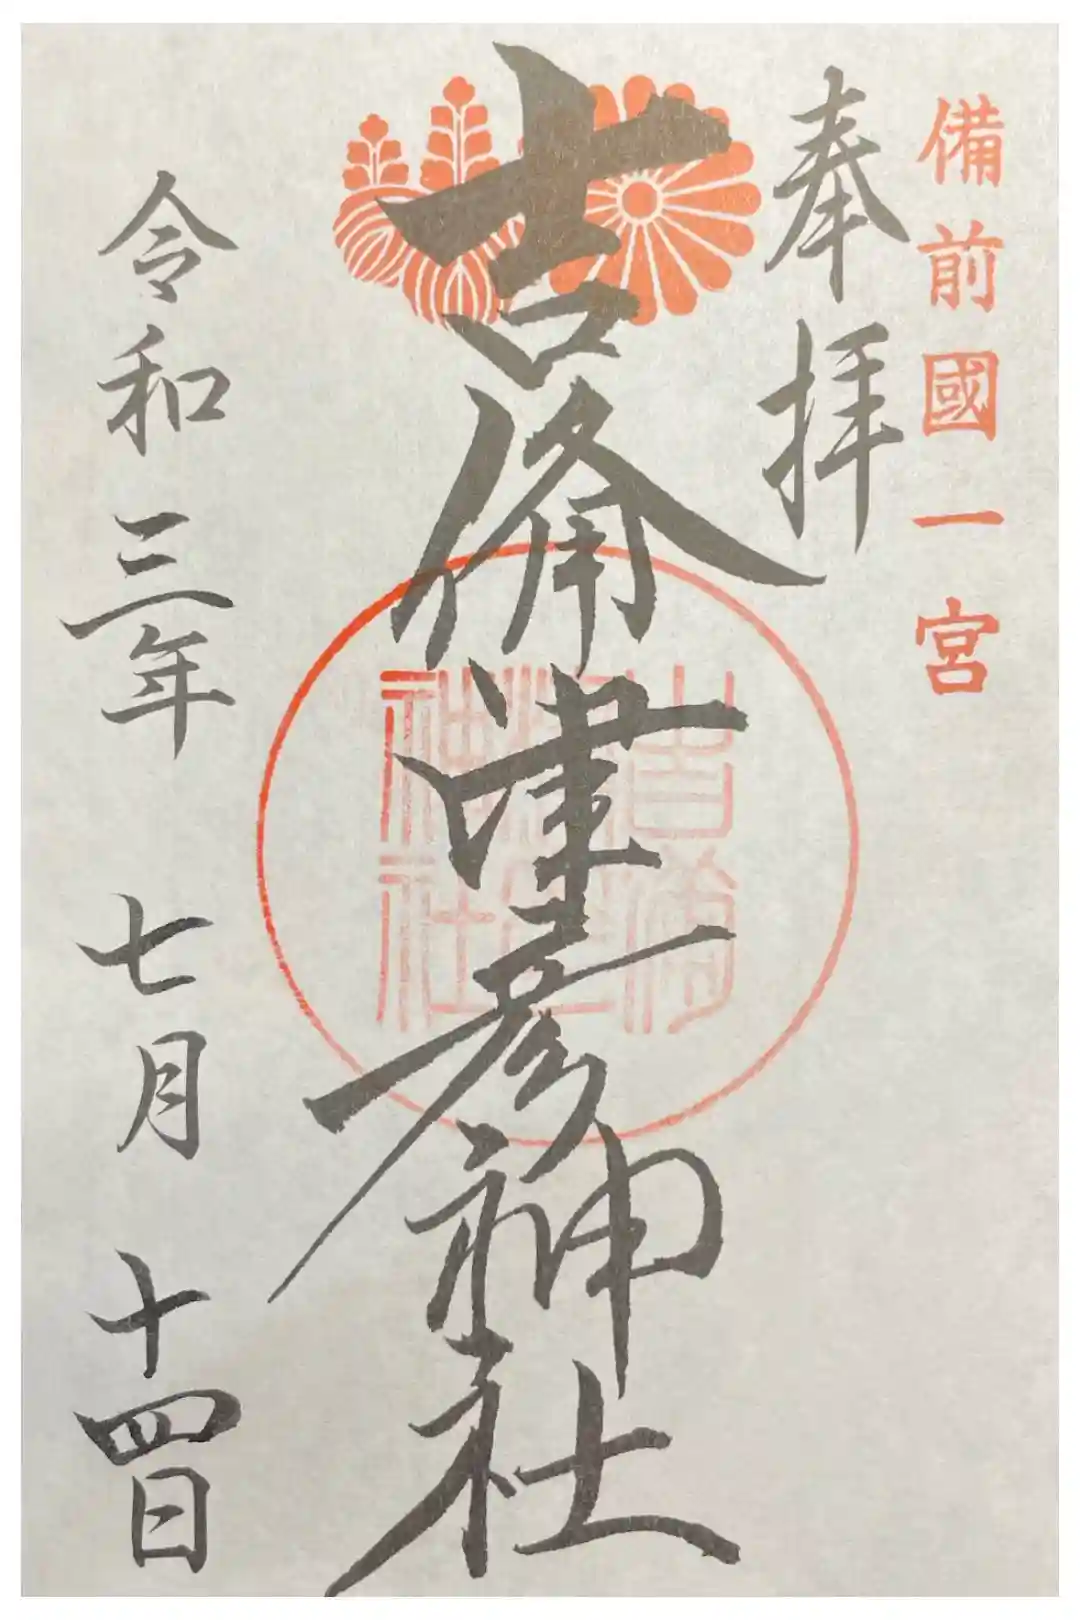 備前國一宮
奉拝
吉備津彦神社
吉備津彦神社
令和三年 七月 十四日